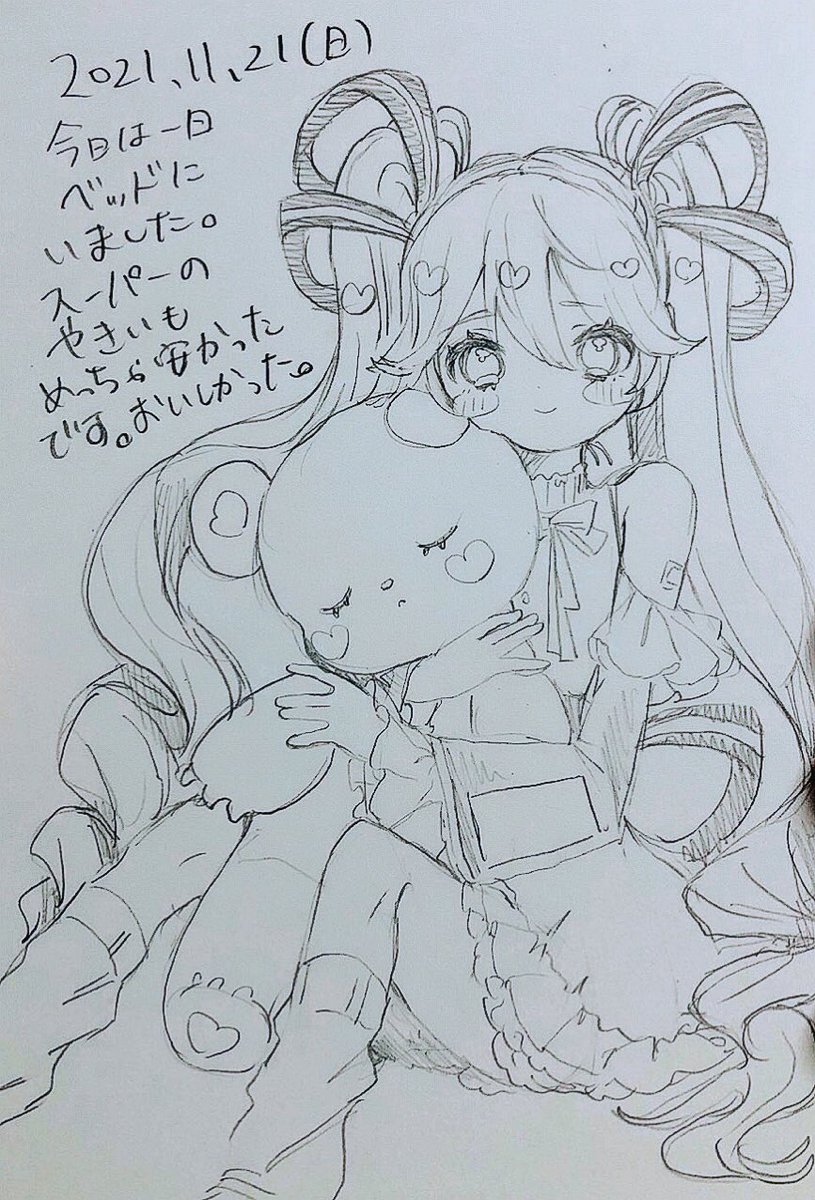 2021.11.21(日)
今日は一日
ベッドに
いました。
スーパーの
やきいも
めっちゃ安かった
です。おいしかった。